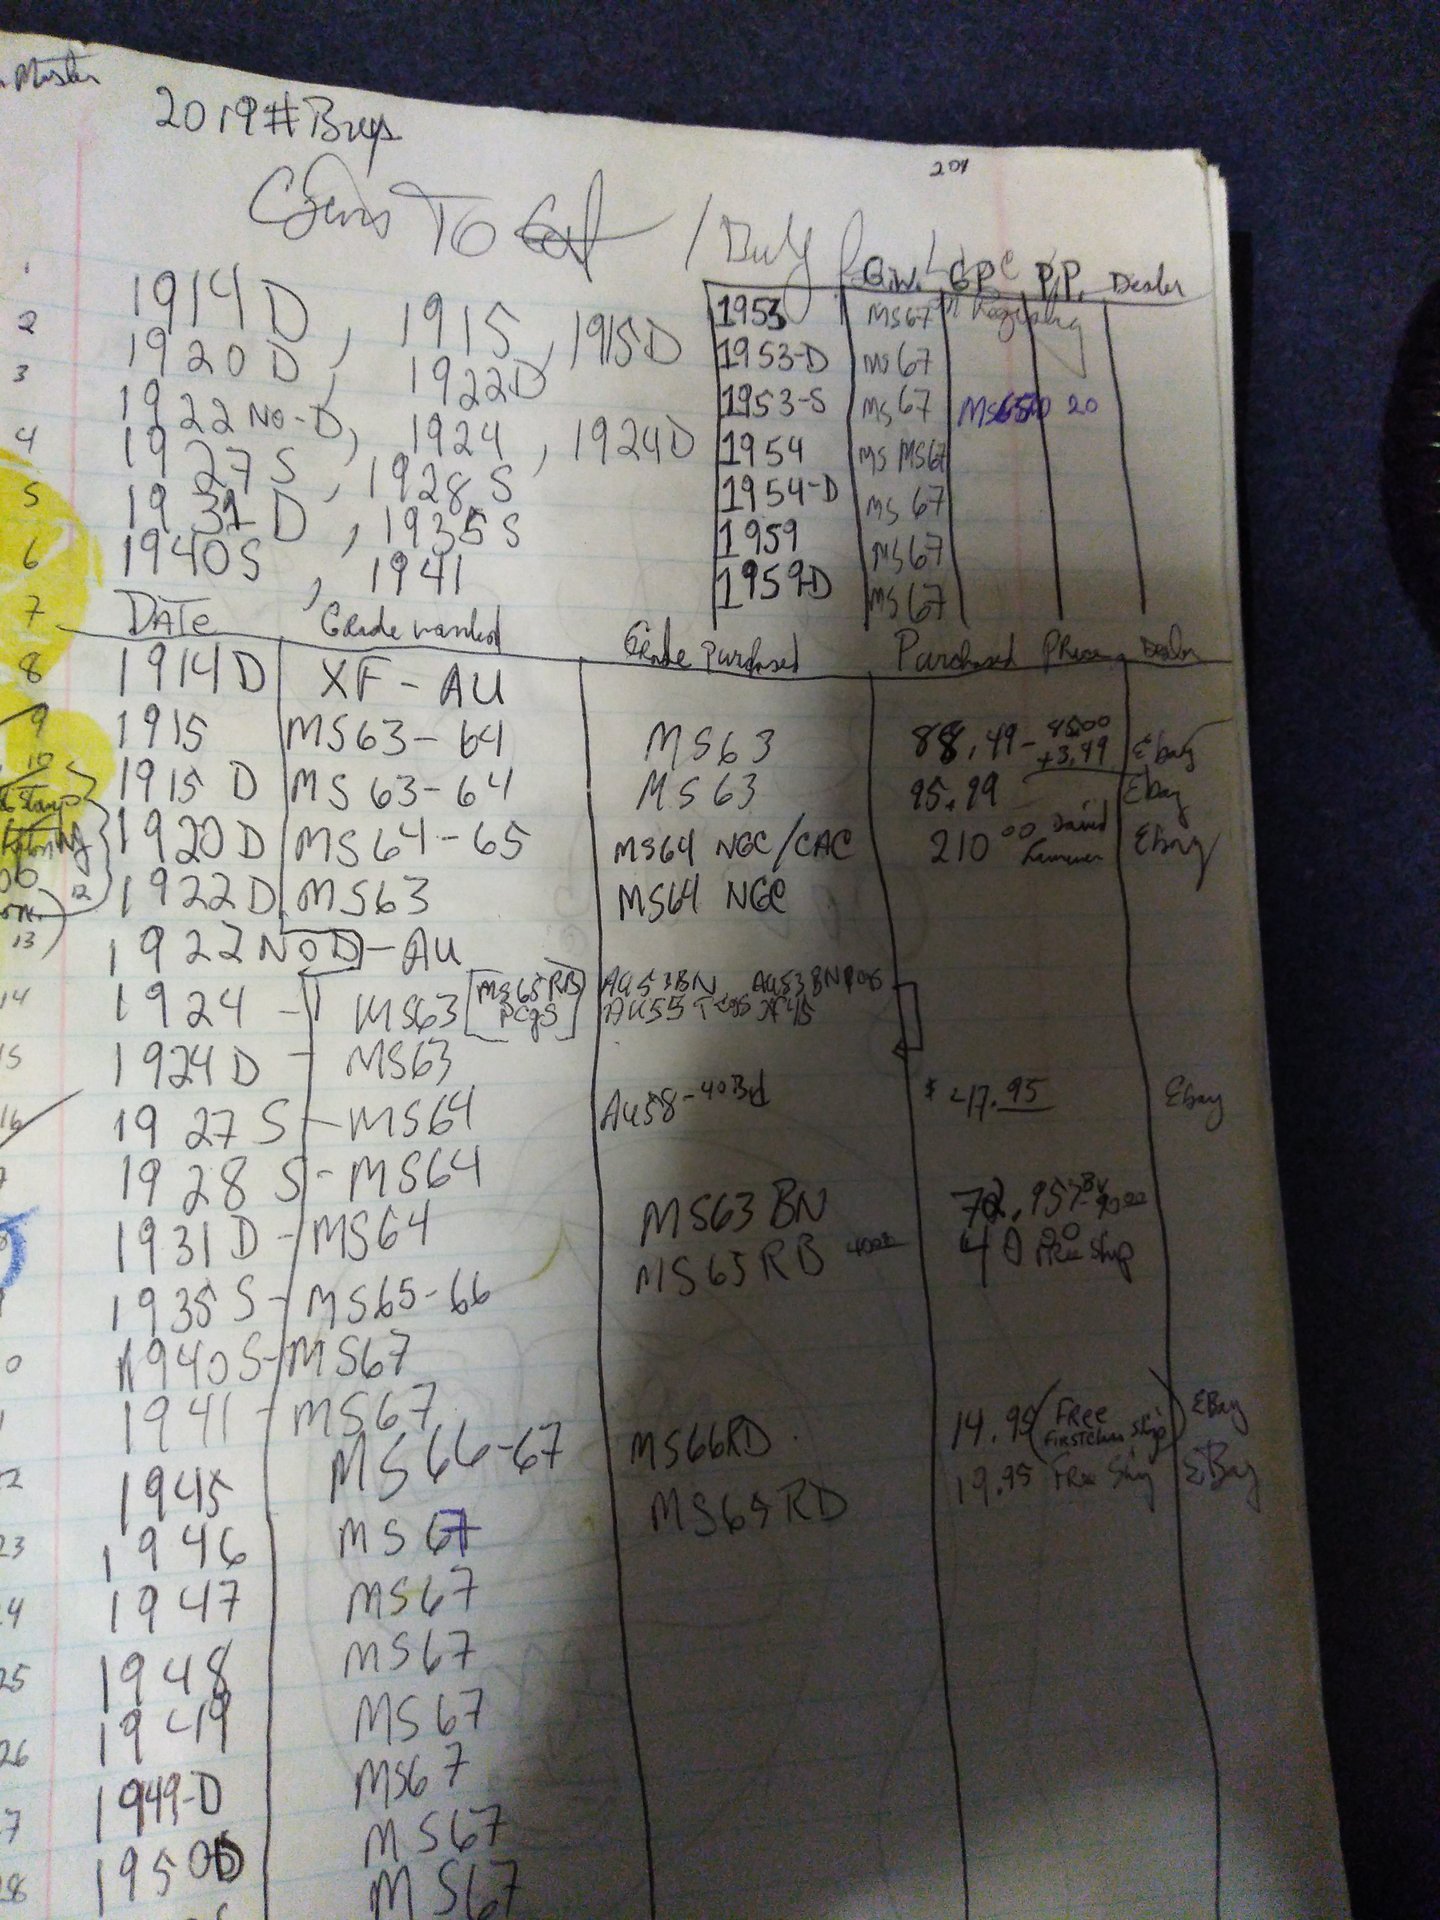 2019 # Buys
201
Coins To Get / Buy for
1914 D, 1915, 1915D
1920 D, 1922D
1922 NO-D, 1924, 1924D
1927 S, 1928 S
1931 D, 1935 S
1940 S, 1941
G.W. G.P. P.P. Dealer
1953 MS67 Registry
1953-D MS67
1953-S MS67 20
1954 MS MS67
1954-D MS67
1959 MS67
1959-D MS67
DATE Grade wanted Grade Purchased Purchased Price Dealer
1914 D XF - AU
1915 MS63-64 MS63 88.49 - 85.00 + 3.49 Ebay
1915 D MS63-64 MS63 95.99 Ebay
1920 D MS64-65 MS64 NGC/CAC 210 00 David Ebay
1922 D MS63 MS64 NGC
1922 NO D - AU
1924 - MS63 [MS65RB PCGS] AU53BN AU53BN AU55 XF45
1924 D - MS63
1927 S - MS64 AU58 - $47.95 Ebay
1928 S - MS64
1931 D - MS64 MS63 BN 72.95
1935 S - MS65-66 MS65 RB 40 00 Free Ship
1940 S - MS67
1941 - MS67
1945 MS66-67 MS66RD 14.95 (Free First Class Ship) EBay
1946 MS67 MS65 RD 19.95 Free Ship EBay
1947 MS67
1948 MS67
1949 MS67
1949-D MS67
1950 D MS67
MS67